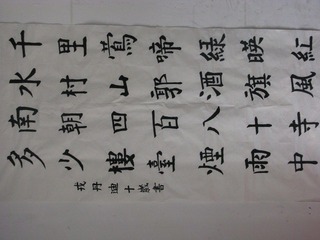 千里鶯啼綠暎紅
水村山郭酒旗風
南朝四百八十寺
多少樓臺煙雨中
戎丹迪十歲書